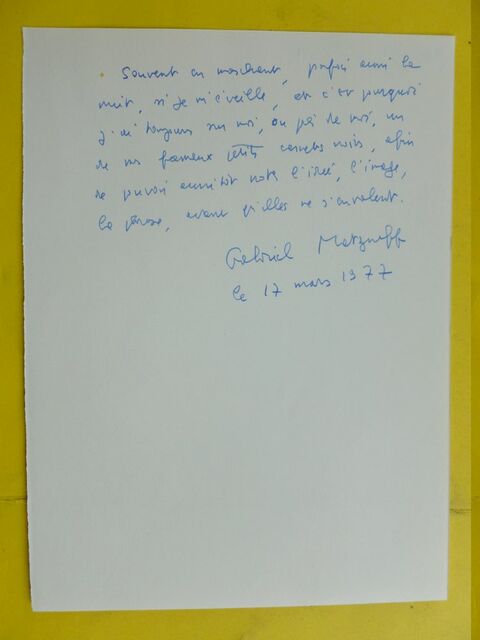 Souvent en marchant, parfois aussi la
nuit, si je m'éveille, et c'est pourquoi
j'ai toujours sur moi, ou près de moi, un
de mes fameux petits carnets noirs, afin
de pouvoir aussitôt noter l'idée, l'image,
la phrase, avant qu'elles ne s'envolent.
Gabriel Matzneff
le 17 mars 1977